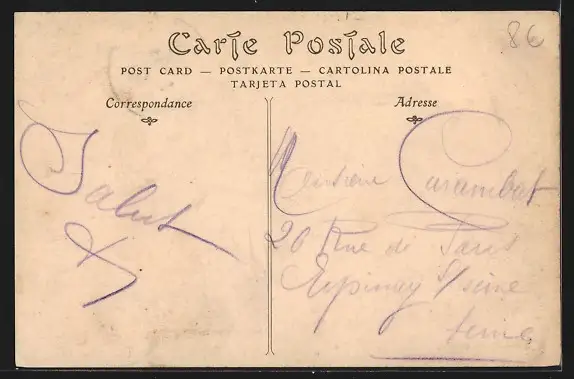 Carte Postale
POST CARD — POSTKARTE — CARTOLINA POSTALE
TARJETA POSTAL
86
Correspondance
Salut
Adresse
Monsieur Carambat
20 Rue de Paris
Epinay s/ seine
seine